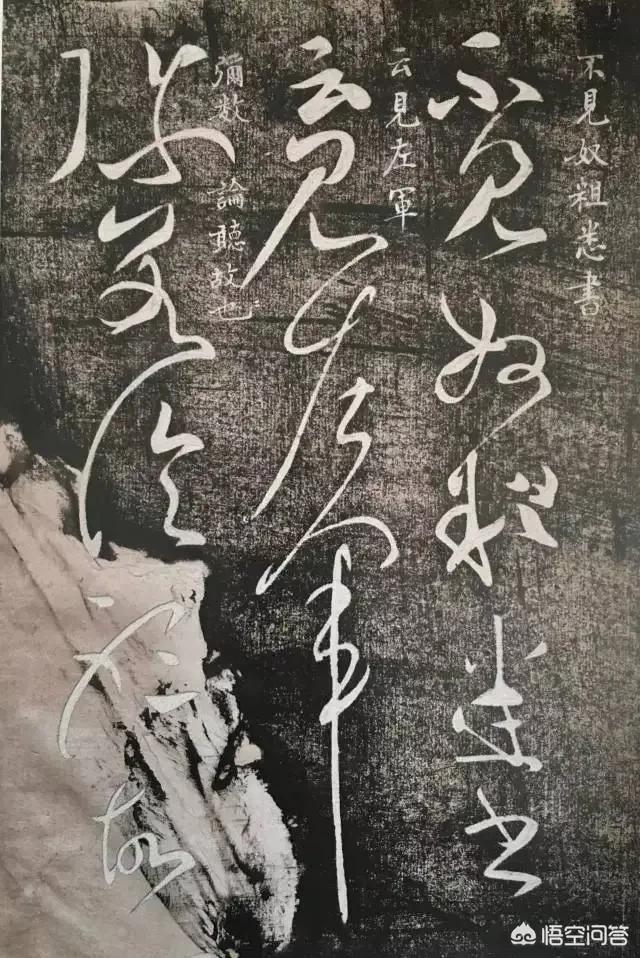 不見奴粗悉書
不見奴粗悉書
云見左軍
云見左軍
彌 論聽故也
彌 論聽故
悟空问答